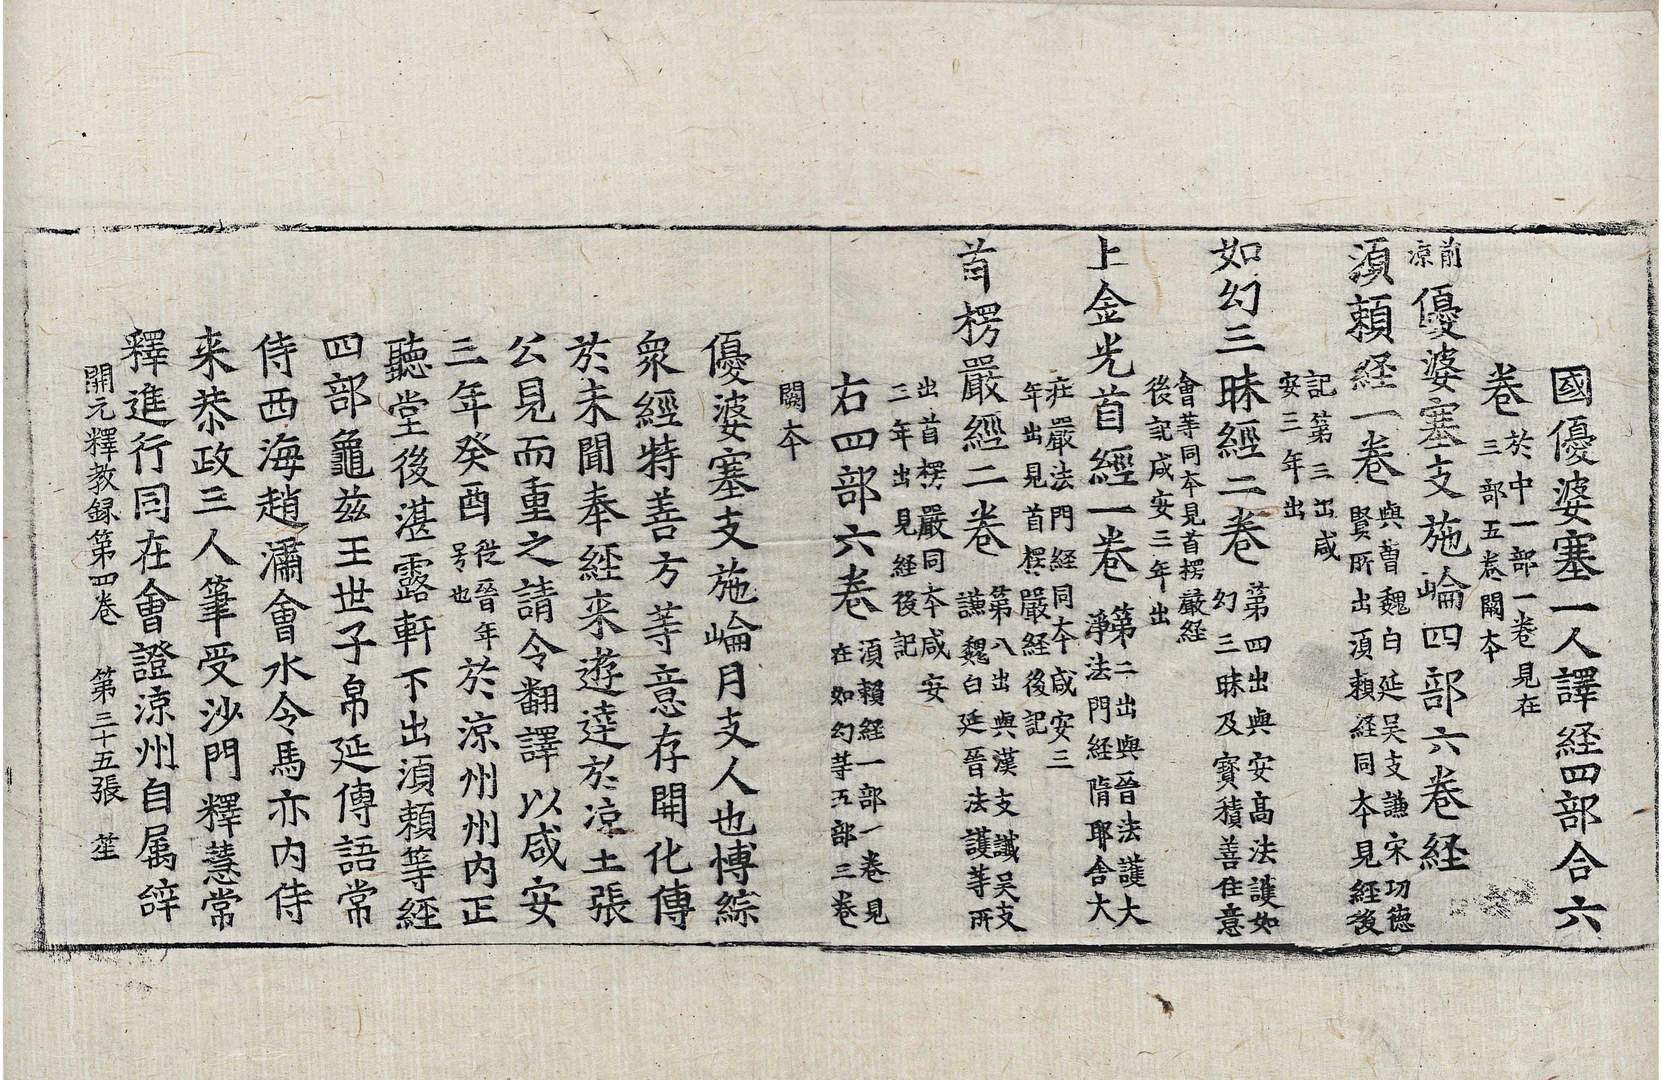 國優婆塞一人譯経四部合六
卷於中一部一卷見在三部五卷闕夲
前凉優婆塞支施崘四部六卷経
湏頼経一卷與曹魏白延吴支謙宋功德賢所出湏頼経同夲見經後
記第三出咸安三年出
如幻三昧經二卷第四出與安髙法護如幻三昧及寳積善住意
會等同夲見首楞嚴経後記咸安三年出
上金光首經一卷第二出與晉法護大淨法門経隋耶舎大
莊嚴法門経同夲咸安三年出見首楞嚴経後記
首楞嚴經二卷第八出與漢支讖吴支謙魏白延晉法護等所
出首楞嚴同夲咸安三年出見経後記
右四部六卷湏賴経一部一卷見在如幻等五部三卷
闕夲
優婆塞支施崘月支人也博綜
衆經特善方等意存開化傳
於未聞奉経来遊達於凉土張
公見而重之請令翻譯以咸安
三年癸酉従晉年号也於凉州州内正
聽堂後湛露軒下出湏賴等経
四部龜茲王世子帛延傳語常
侍西海趙潚會水令馬亦内侍
来恭政三人筆受沙門釋慧常
釋進行同在會證凉州自属辝
開元釋教録第四卷 第三十五張 荎